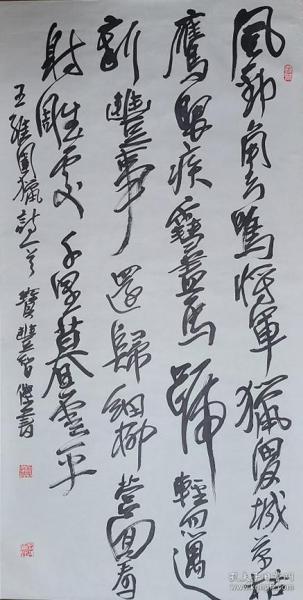 風勁角弓鳴將軍獵渭城草枯
鷹眼疾雪盡馬蹄輕忽過
新豐市還歸細柳營回看
射雕處千里暮雲平
王維圍獵詩一首
孔夫子旧书网